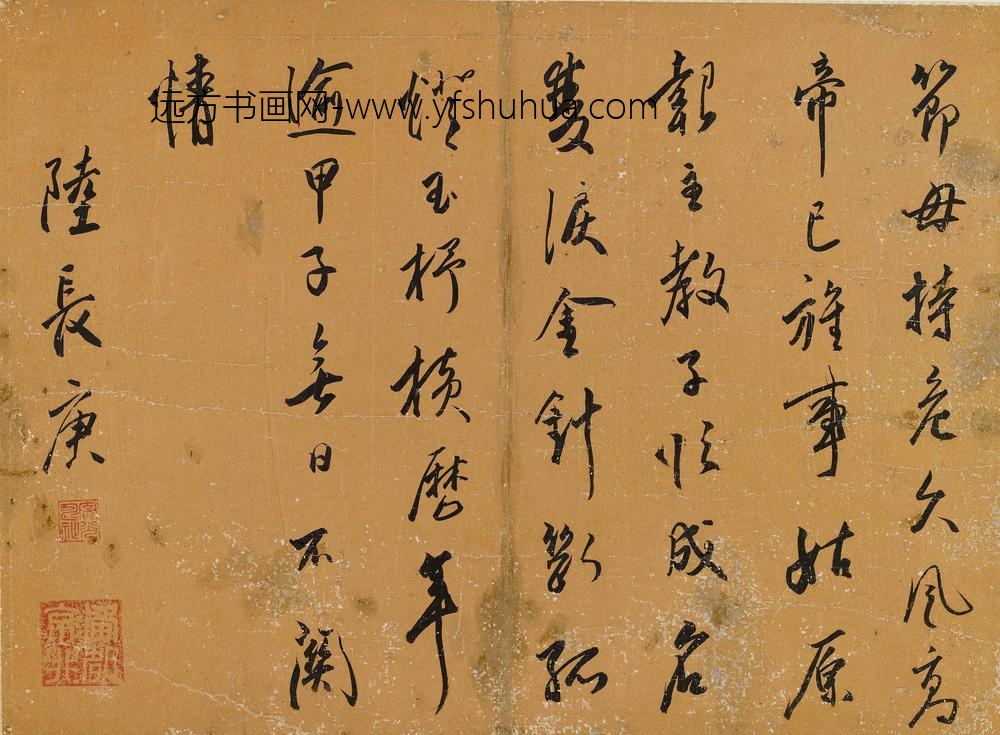 節母持危久風高
帝已旌事姑原
報主教子成名
雙淚金針斷孤
燈玉杼橫歷年
逾甲子無日不關
情
陸長庚
远方书画网-www.yfshuhua.com